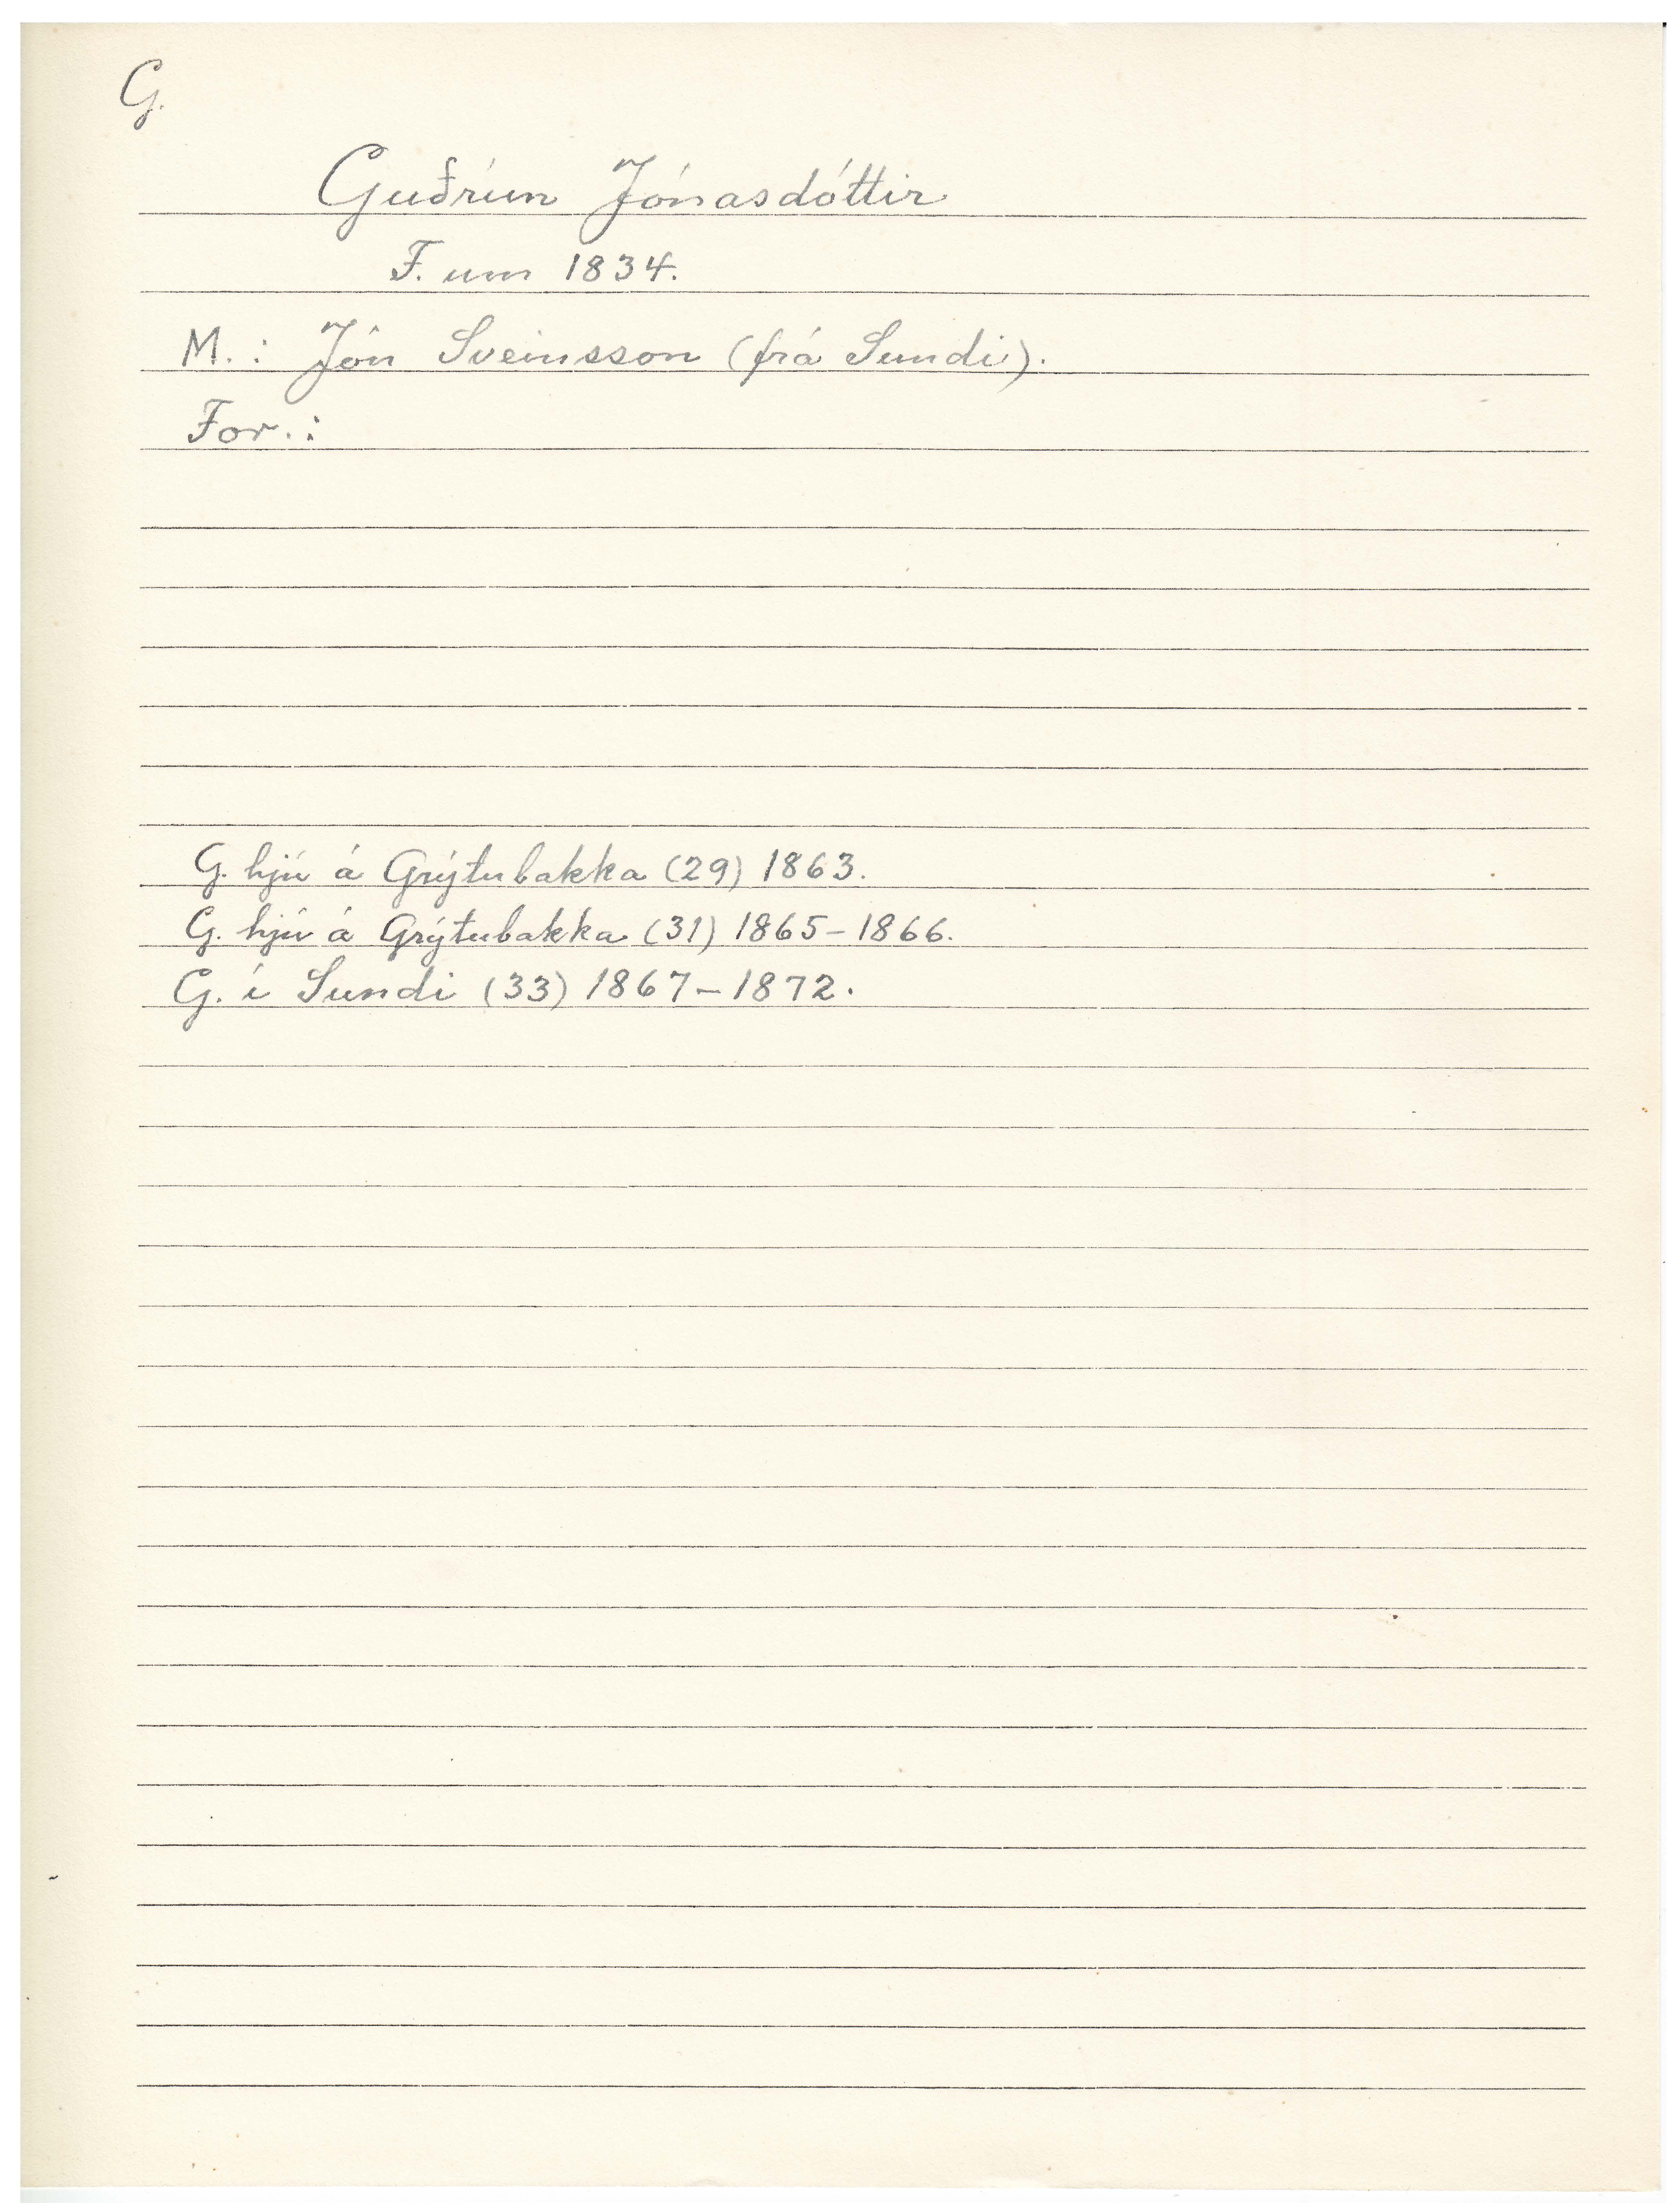 G.
Guðrún Jónasdóttir
F. um 1834.
M.: Jón Sveinsson (frá Sundi).
For.:
G. hjú á Grýtubakka (29) 1863.
G. hjú á Grýtubakka (31) 1865-1866.
G. í Sundi (33) 1867-1872.